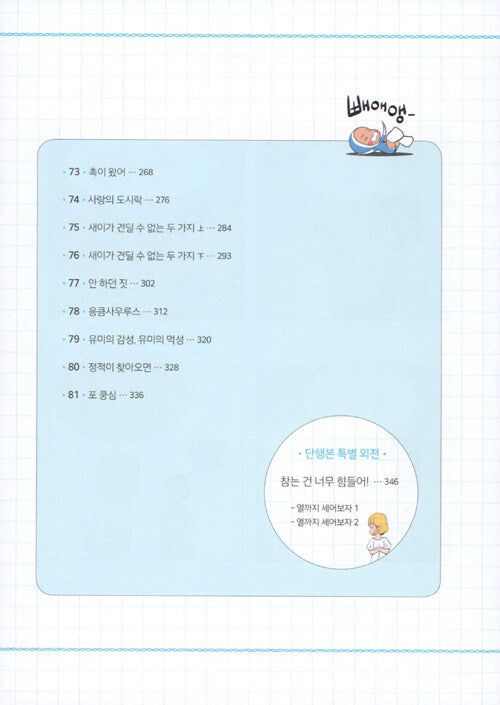 빼애앵-
· 73 · 촉이 왔어 ··· 268
· 74 · 사랑의 도시락 ··· 276
· 75 · 새이가 견딜 수 없는 두 가지 上 ··· 284
· 76 · 새이가 견딜 수 없는 두 가지 下 ··· 293
· 77 · 안 하던 짓 ··· 302
· 78 · 응큼사우루스 ··· 312
· 79 · 유미의 감성, 유미의 먹성 ··· 320
· 80 · 정적이 찾아오면 ··· 328
· 81 · 포 쿵심 ··· 336
· 단행본 특별 외전 ·
참는 건 너무 힘들어! ··· 346
- 열까지 세어보자 1
- 열까지 세어보자 2